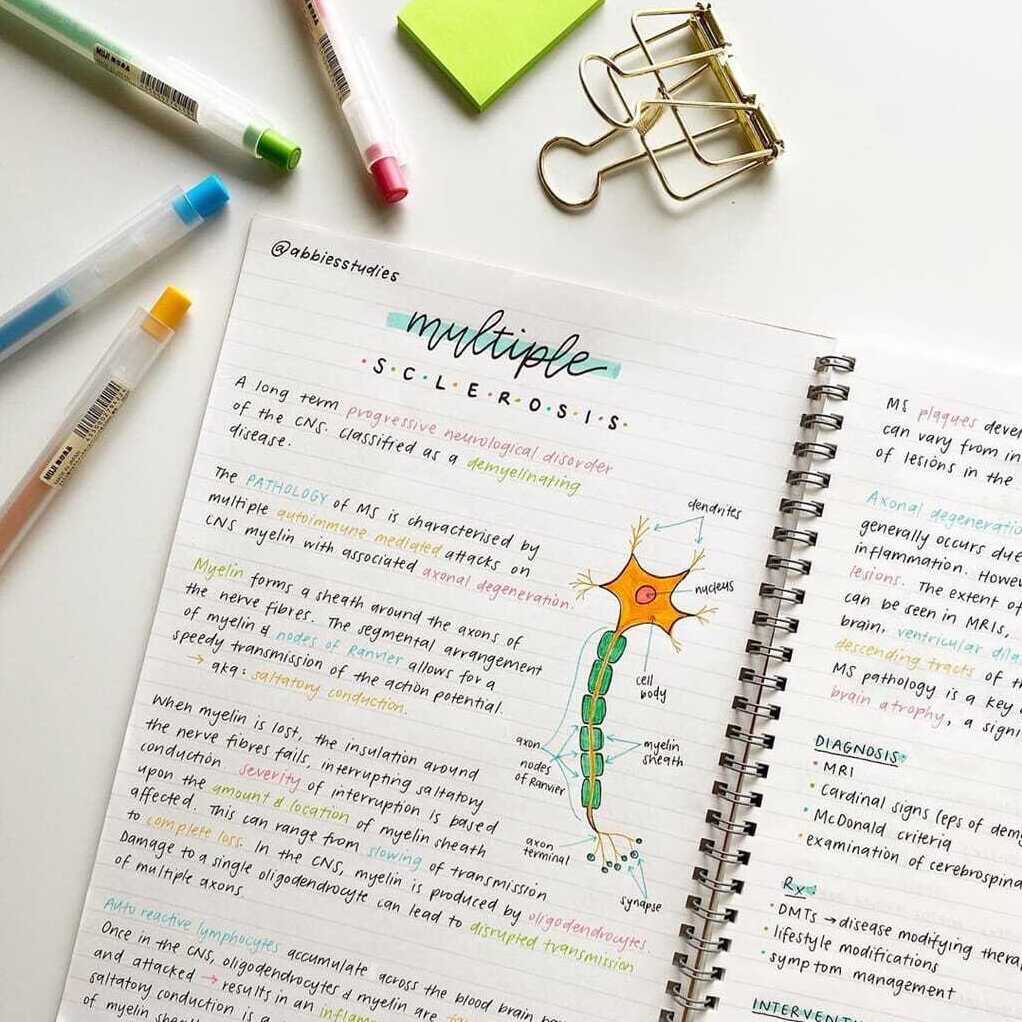 @abbiesstudies
multiple
SCLEROSIS
A long term progressive neurological disorder
of the CNS. Classified as a demyelinating
disease.
The PATHOLOGY of MS is characterised by
multiple autoimmune mediated attacks on
CNS myelin with associated axonal degeneration.
Myelin forms a sheath around the axons of
the nerve fibres. The segmental arrangement
of myelin & nodes of Ranvier allows for a
speedy transmission of the action potential.
→ aka: saltatory conduction.
When myelin is lost, the insulation around
the nerve fibres fails, interrupting saltatory
conduction. Severity of interruption is based
upon the amount & location of myelin sheath
affected. This can range from slowing of transmission
to complete loss. In the CNS, myelin is produced by oligodendrocytes.
Damage to a single oligodendrocyte can lead to disrupted transmission
of multiple axons.
Auto reactive lymphocytes accumulate across the blood brain
Once in the CNS, oligodendrocytes & myelin are
and attacked → results in an
saltatory conduction is a
of myelin
dendrites
nucleus
cell
body
axon
nodes
of Ranvier
myelin
sheath
axon
terminal
synapse
MS plaques
can vary from
of lesions in the
Axonal
generally occurs due
inflammation.
lesions. The extent of
can be seen in MRIs,
brain, ventricular
descending tracts of
MS pathology is a key
brain atrophy, a
DIAGNOSIS
• MRI
• Cardinal signs (eps of
• McDonald criteria
• examination of
Rx
• DMTs → disease modifying
• lifestyle modifications
• symptom management
MUJI
MUJI